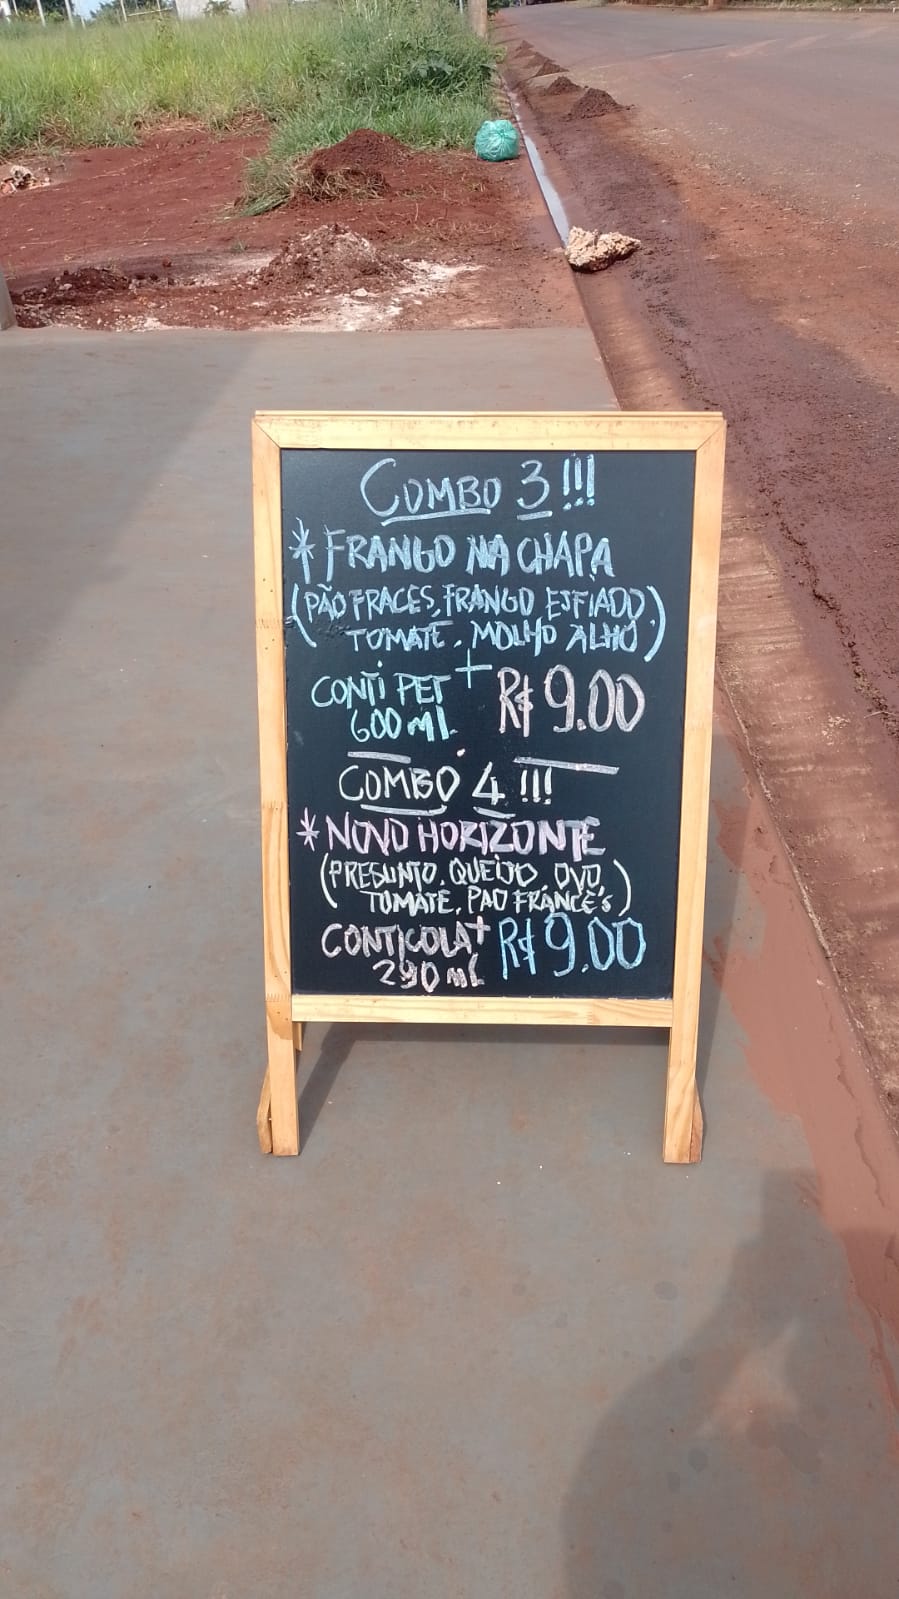 COMBO 3!!!
* FRANGO NA CHAPA
(PÃO FRACES, FRANGO ESFIADO,
TOMATE, MOLHO ALHO)
CONTI PET +
600 ml. R$ 9.00
COMBO 4!!!
* NOVO HORIZONTE
(PRESUNTO, QUEIJO, OVO,
TOMATE, PAO FRANCÊs)
CONTICOLA +
290 ml R$ 9.00